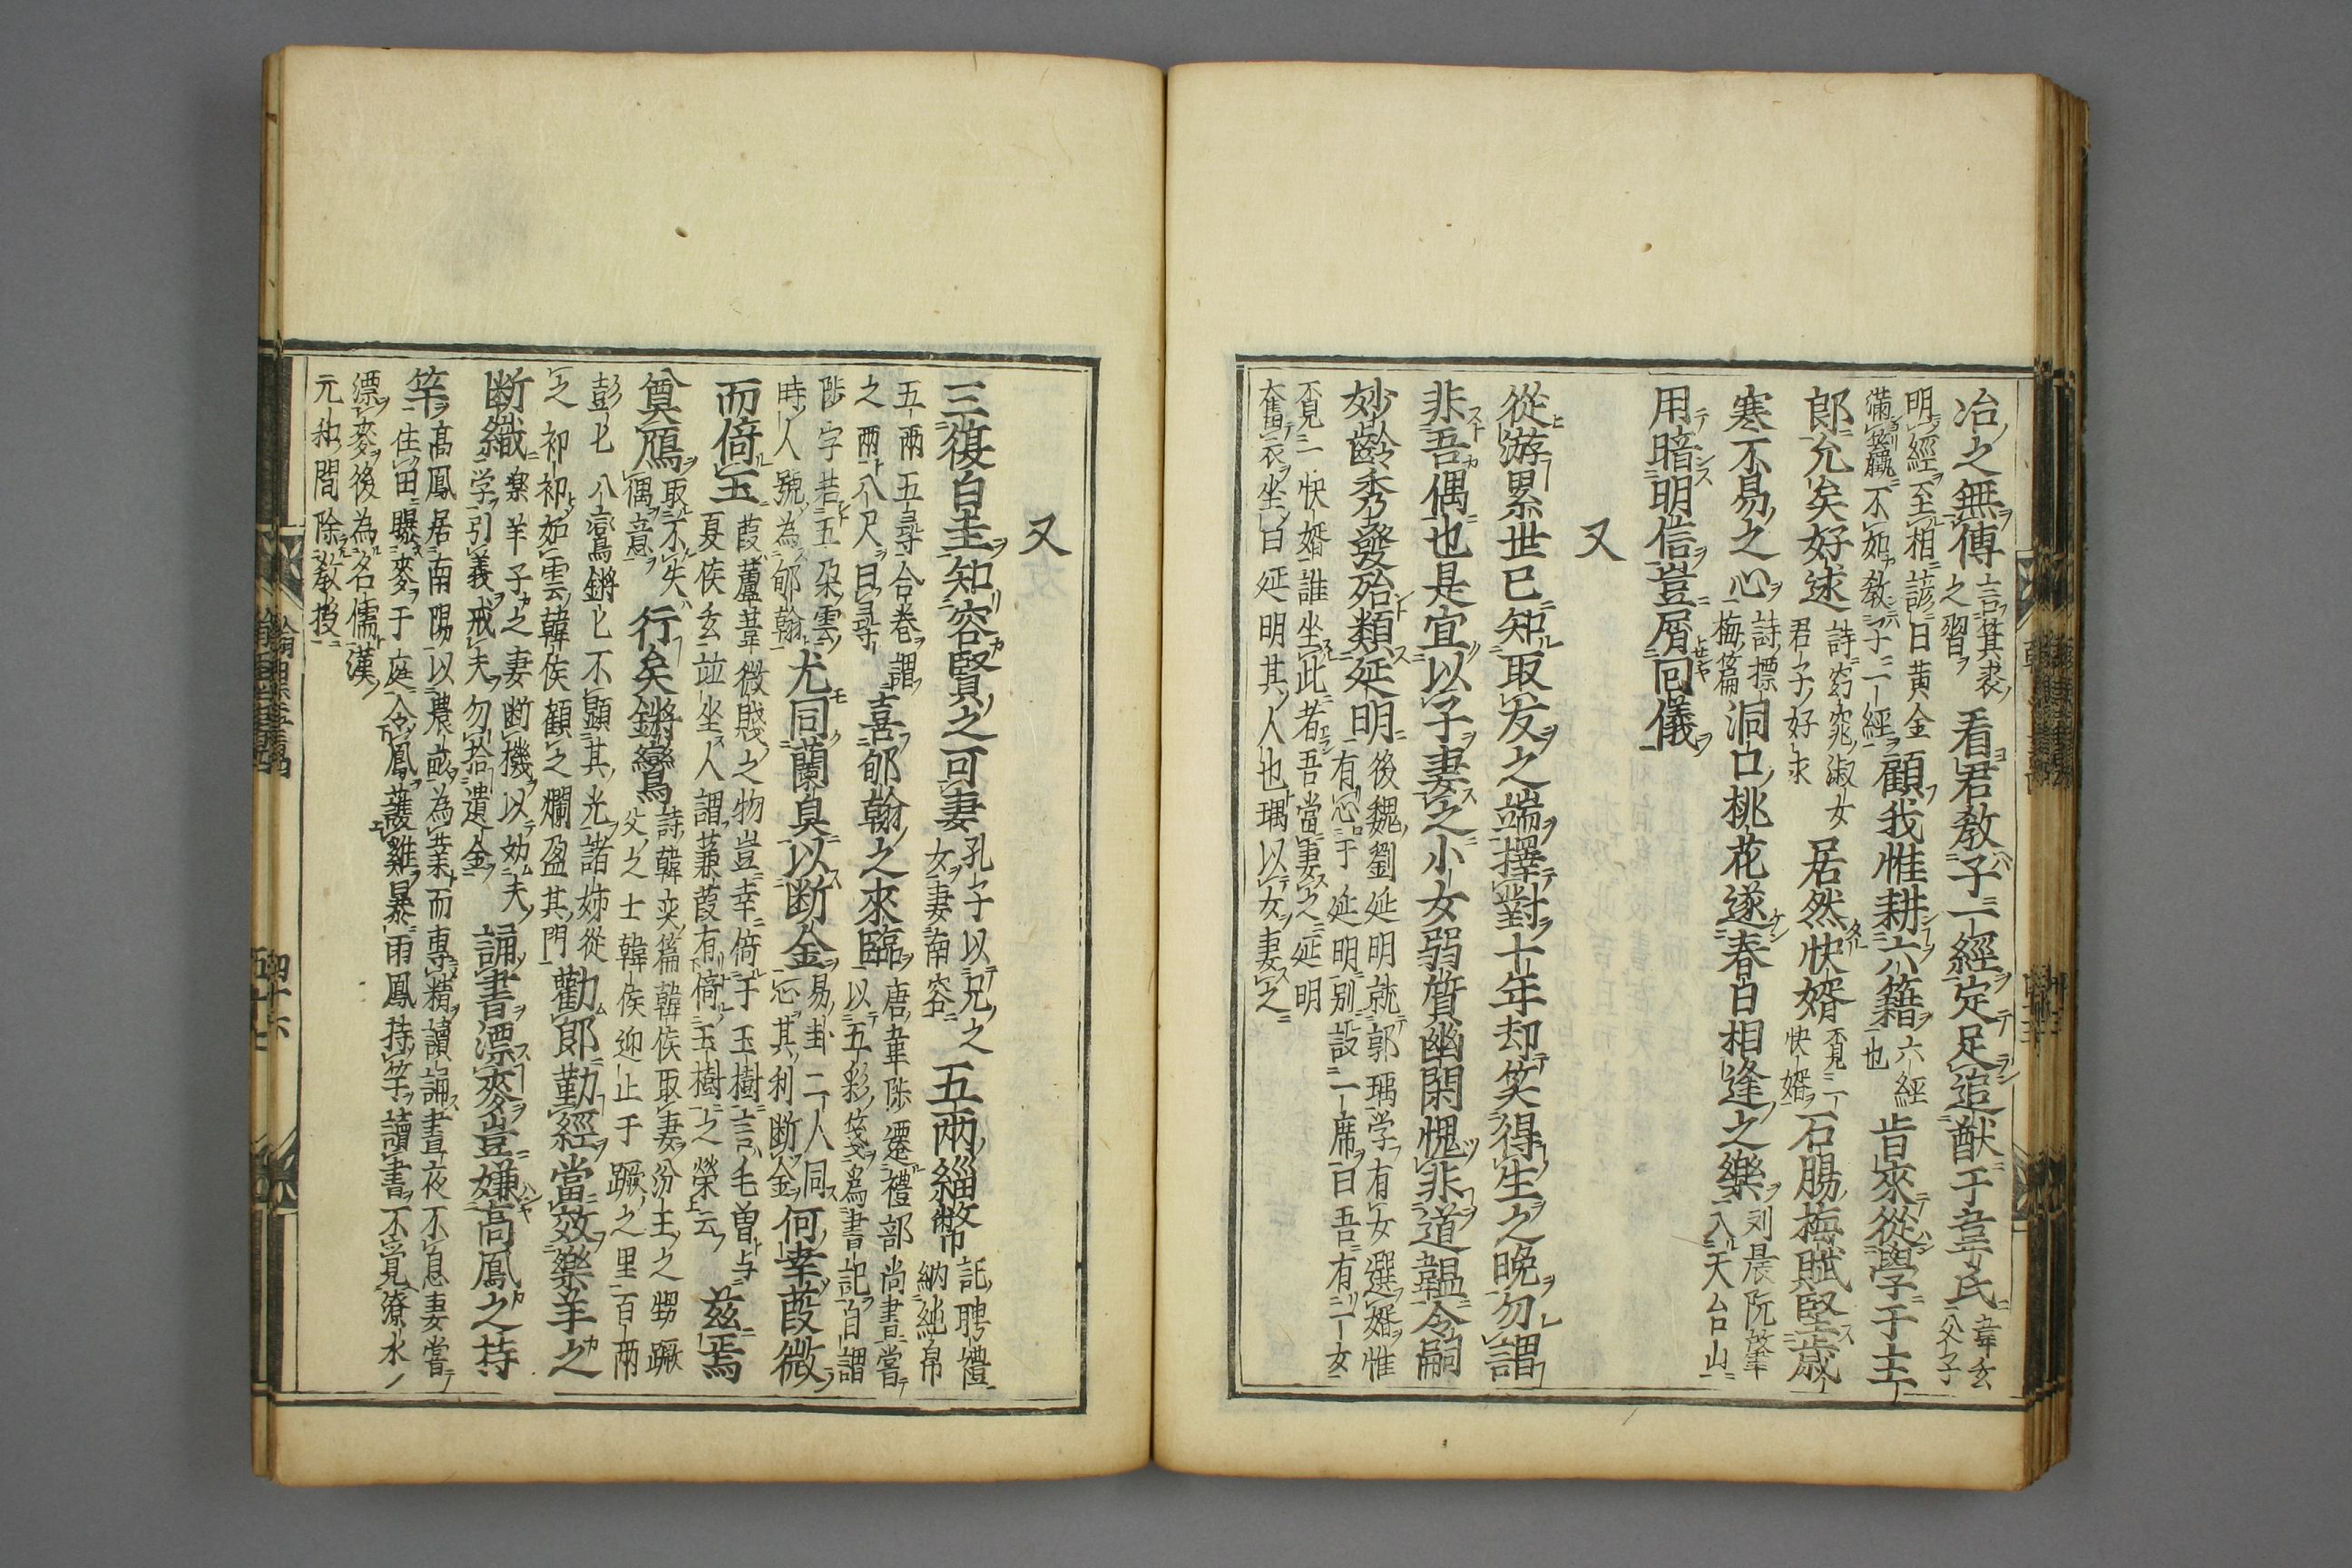 冶之無傳言箕裘之習看君教子一經定足追猷于韋氏韋玄八父子
明經至相諺曰黄金滿籝不如教子一經顧我惟耕六籍六經也皆來從學于主
郎允矣好逑詩窈窕淑女君子好求居然快婿吾見一快婿石腸梅賦堅歲
寒不易之心詩摽梅篇洞口桃花遂春日相逢之樂刘晨阮肇入天台山
用暗明信豈屑回儀
又
從游累世已知取友之端擇對十年却笑得生之晩勿謂
非吾偶也是宜以子妻之小女弱質幽閑愧非道韞令嗣
妙齡秀發殆類延明後魏劉延明就郭瑀学有女選婿惟有心于延明別設一席曰吾有一女
吾見一快婿誰坐此者吾當妻之延明
奮衣坐曰延明其人也瑀以女妻之
又
三復白圭知容賢之可妻孔子以兄之女妻南容五兩緇幣記聘禮納純帛
五兩五尋合卷謂之兩八尺曰尋喜郇翰之來臨唐韋陟遷禮部尚書嘗以五彩箋為書記自謂
陟字若五朶雲時人號為郇翰尤同蘭臭以断金易卦二人同心其利断金何幸葭微
而倚玉葭蘆葦微賤之物豈幸倚于玉樹言毛曽与夏侯玄並坐人謂蒹葭有倚玉樹之榮云茲焉
奠鴈取不失偶意行矣鏘鸞詩韓奕篇韓侯取妻汾王之甥蹶父之士韓侯迎止于蹶之里百兩
彭匕八鸞鏘匕不顕其光諸姊從之祁祁如雲韓侯顧之爛盈其門勸郎勤經當效樂羊之
断織楽羊子之妻断機以妨夫学引義戒夫勿拾遺金誦書漂麥豈嫌高鳳之持
竿高鳳居南陽以農畝為業而專精讀誦晝夜不息妻嘗住田曝麥于庭令鳳護雞暴雨鳳持竿讀書不覚潦水
漂麥後為名儒漢元和間除教授